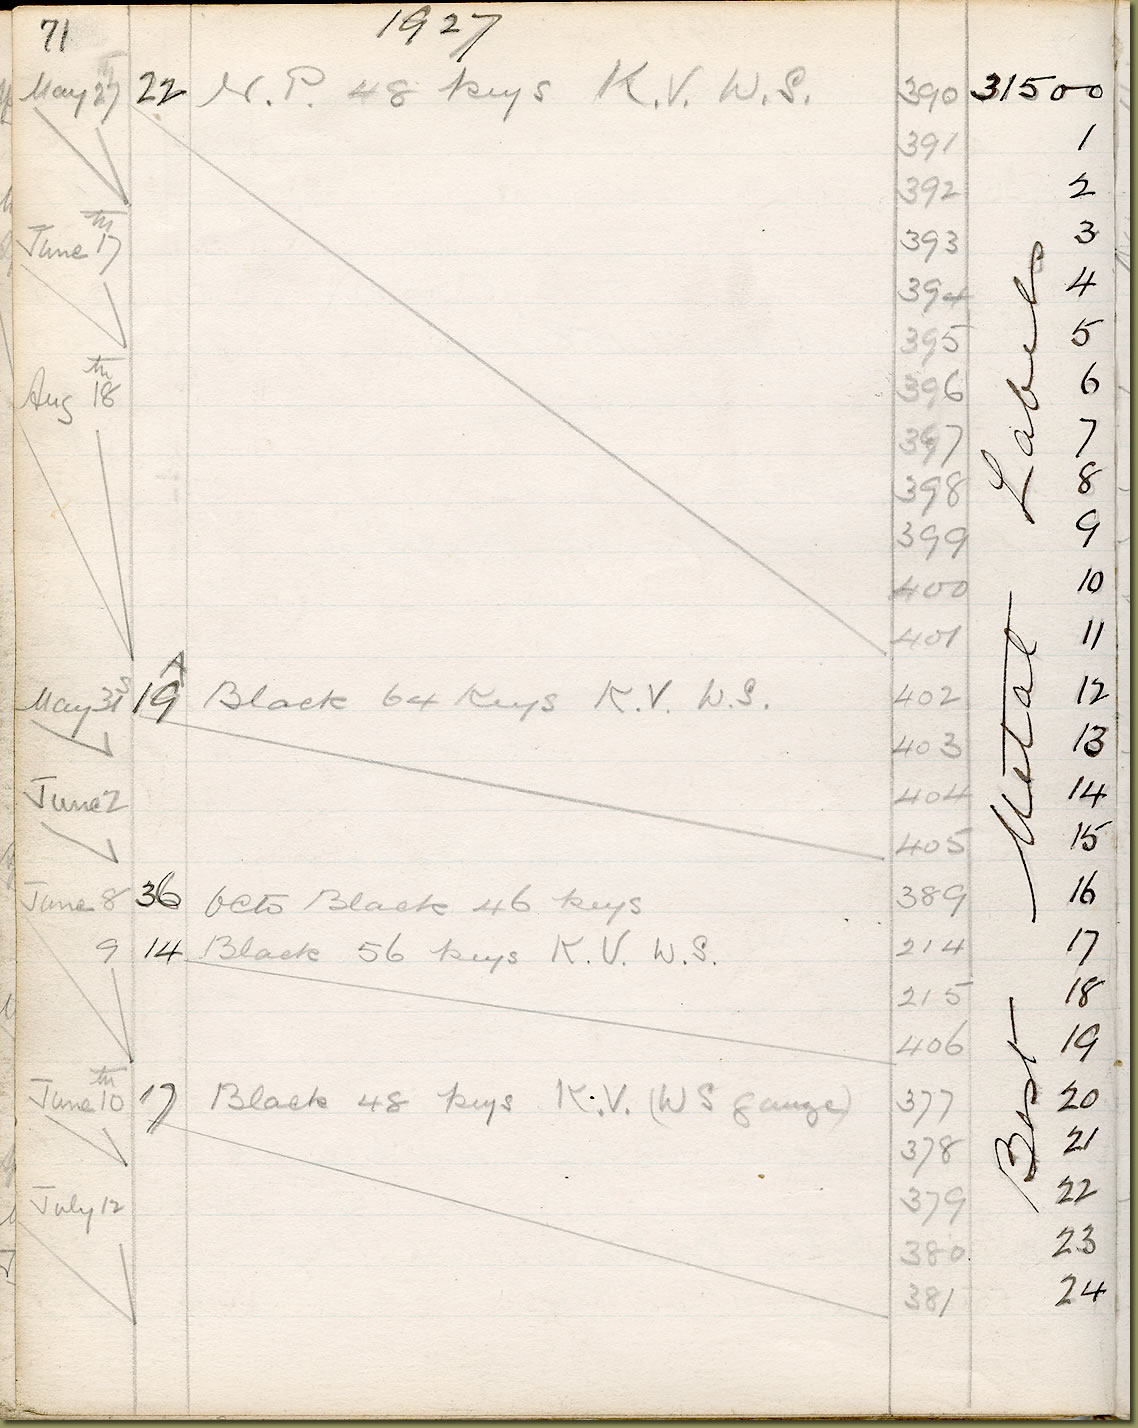 71 1927
May 27th 22 N.P. 48 keys K.V. W.S. 390 31500
391 1
392 2
June 17th 393 3
394 4
395 5
Aug 18th 396 6
397 7
398 8
399 9
400 10
401 11
May 31s 19A Black 64 Keys K.V. W.S. 402 12
403 13
June 2 404 14
405 15
June 8 36 octo Black 46 keys 389 16
9 14 Black 56 keys K.V. W.S. 214 17
215 18
406 19
June 10th 17 Black 48 keys K.V. (WS gauge) 377 20
378 21
July 12 379 22
380 23
381 24
Best Metal Labels